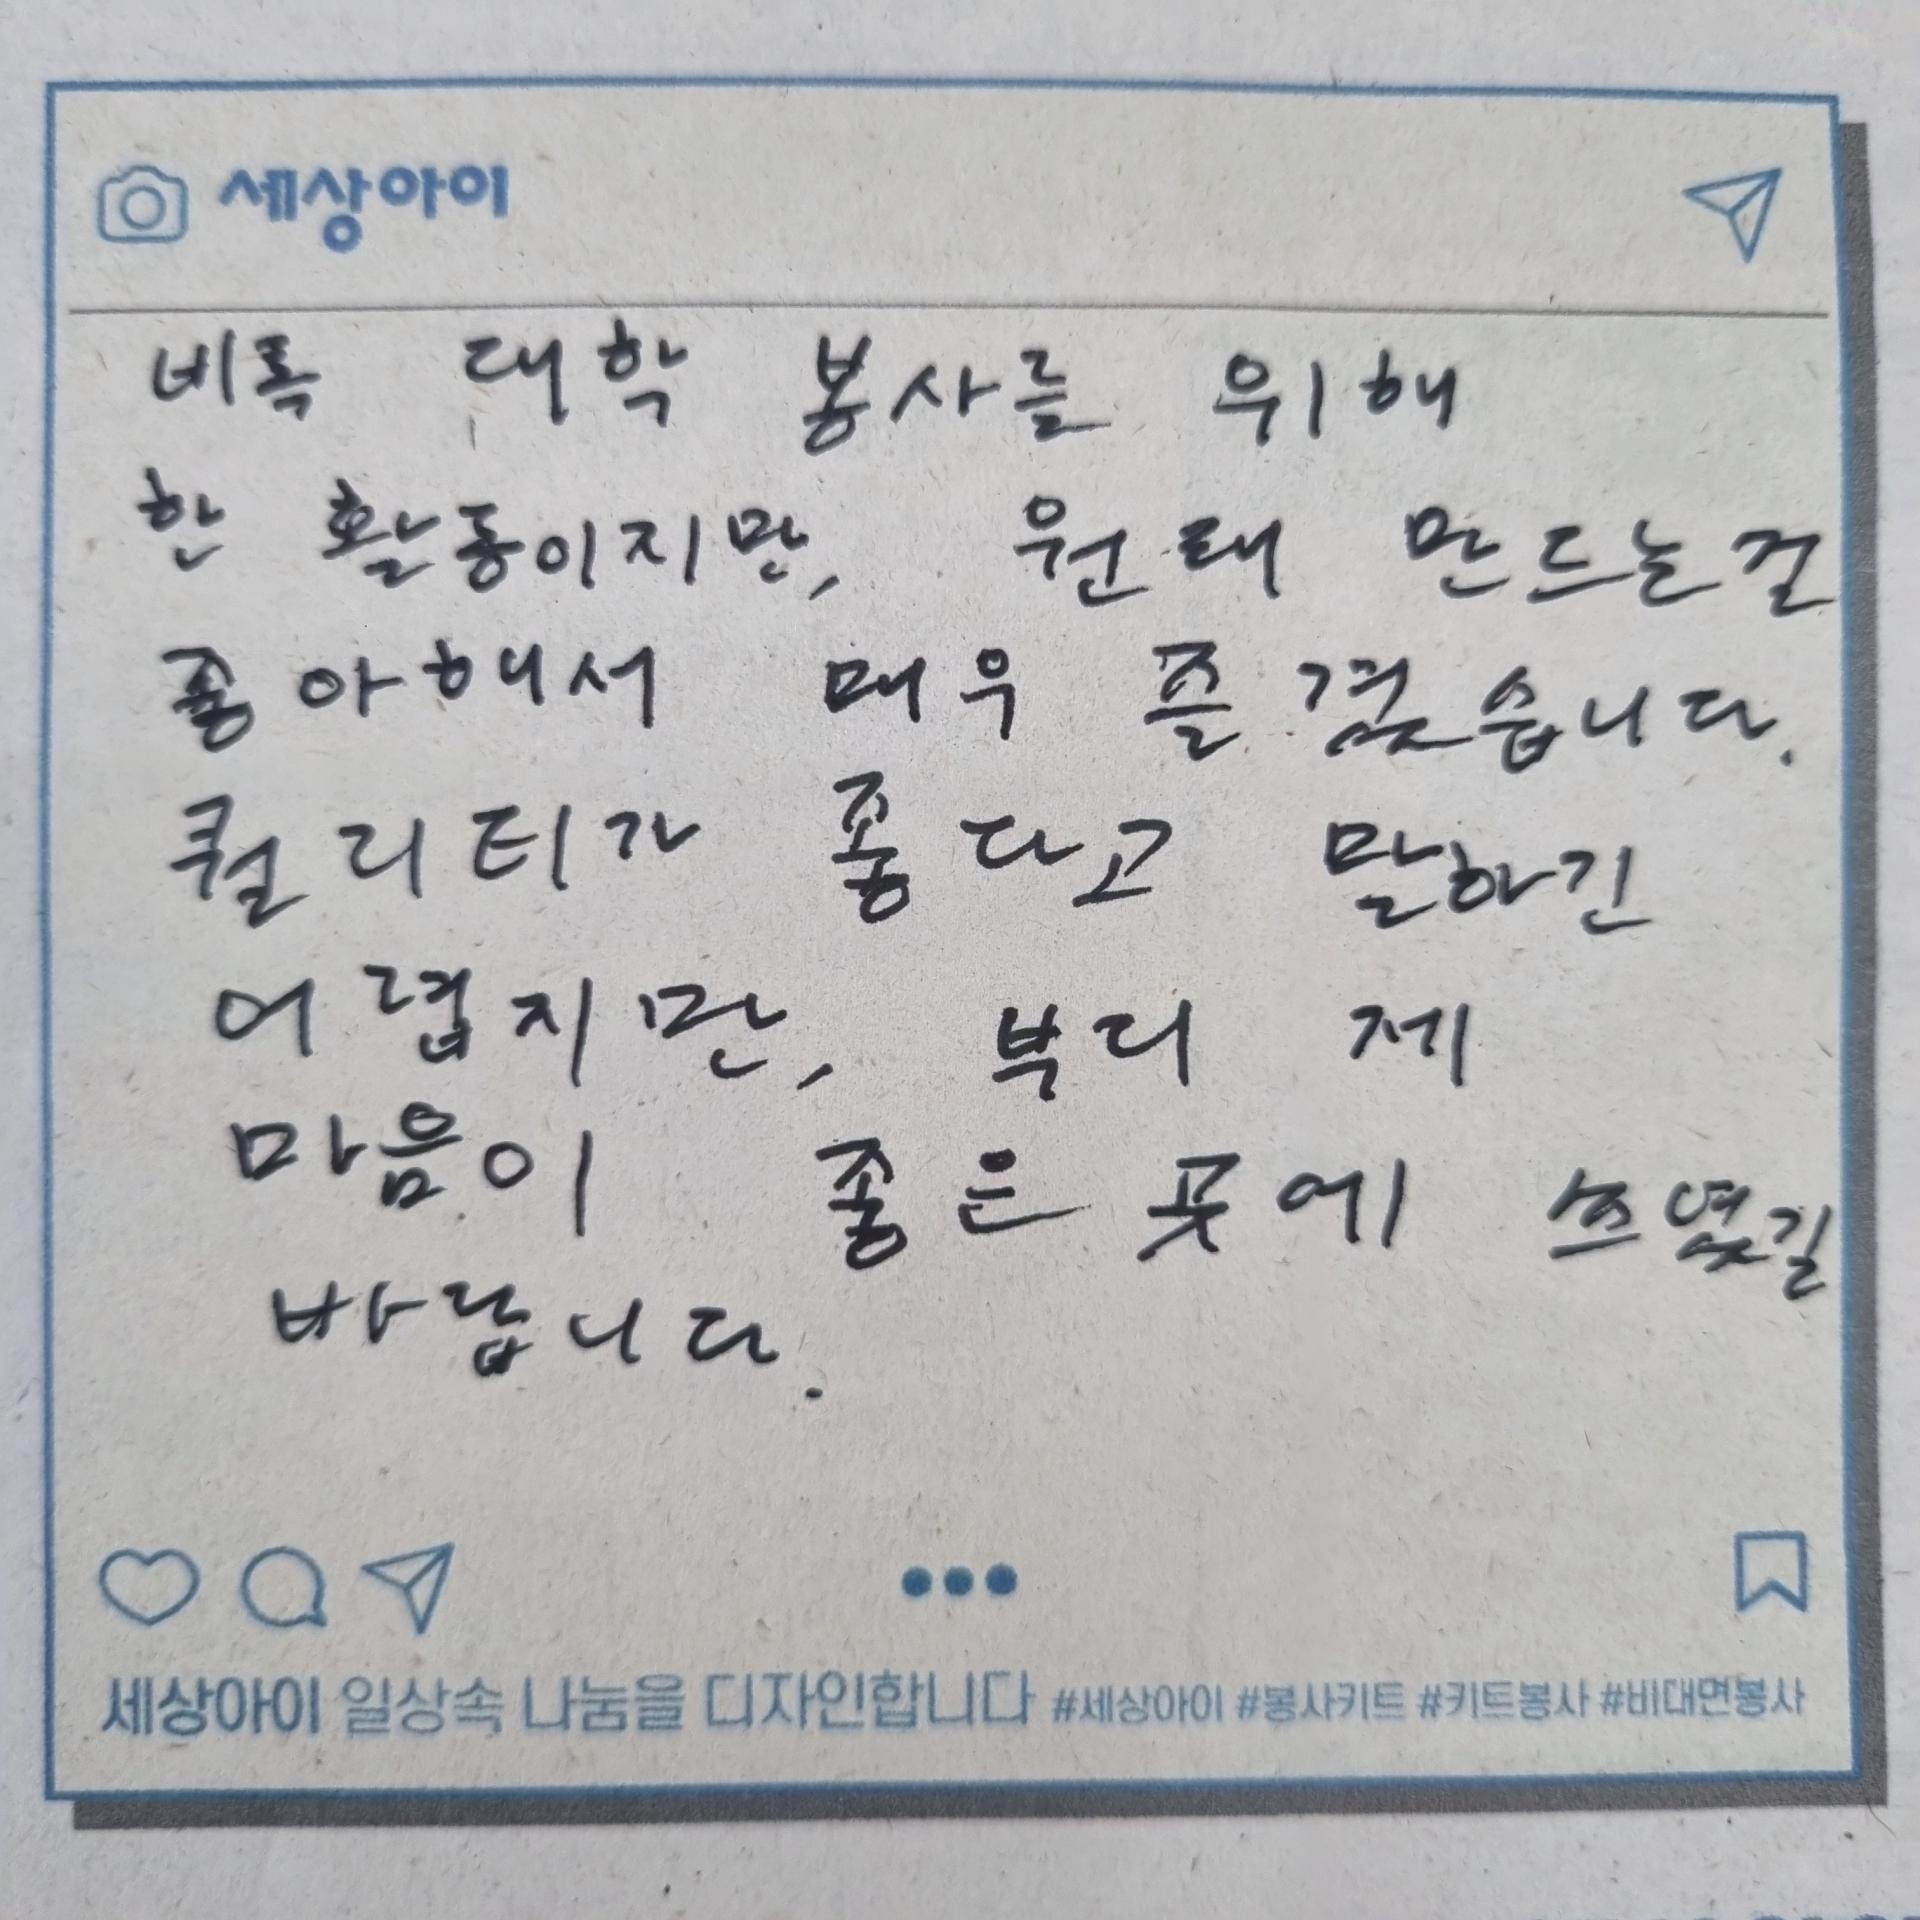 세상아이
비록 대학 봉사를 위해
한 활동이지만, 원태 만드는걸
좋아해서 매우 즐겼습니다.
퀄리티가 좋다고 말하긴
어렵지만, 부디 제
마음이 좋은 곳에 쓰였길
바랍니다.
세상아이 일상속 나눔을 디자인합니다 #세상아이 #봉사키트 #키트봉사 #비대면봉사